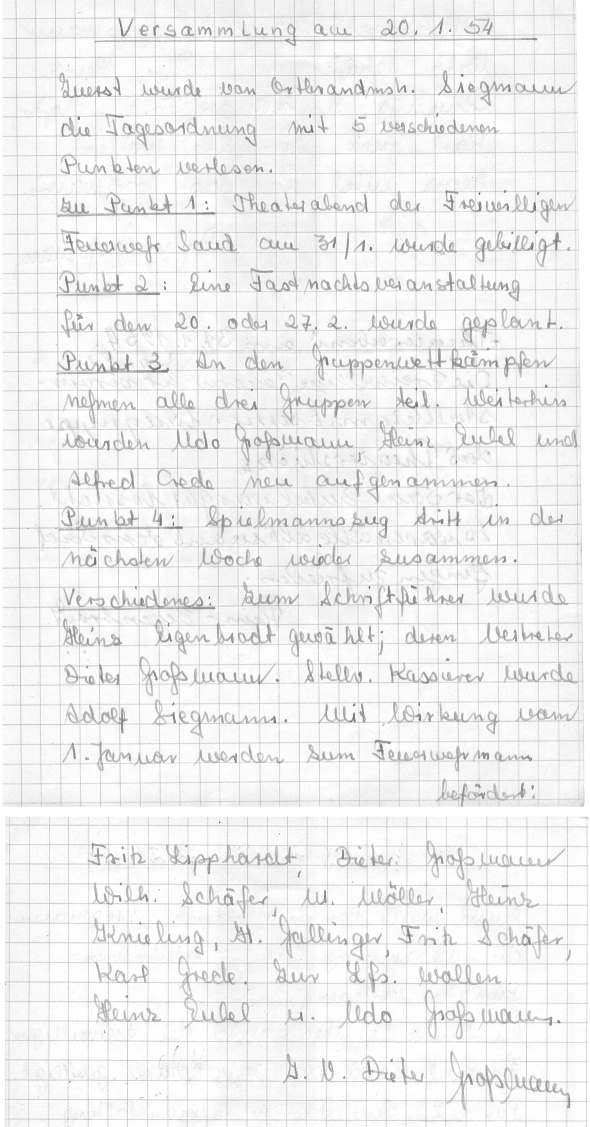 Versammlung am 20. 1. 54
Zuerst wurde von Ortsbrandmstr. Siegmann
die Tagesordnung mit 5 verschiedenen
Punkten verlesen.
Zu Punkt 1: Theaterabend der Freiwilligen
Feuerwehr Sand am 31/1. wurde gebilligt.
Punkt 2: Eine Fastnachtsveranstaltung
für den 20. oder 27. 2. wurde geplant.
Punkt 3 An den Gruppenwettkämpfen
nehmen alle drei Gruppen teil. Weiterhin
wurden Udo Großmann, Heinz Eubel und
Alfred Grede neu aufgenommen.
Punkt 4: Spielmannszug tritt in der
nächsten Woche wieder zusammen.
Verschiedenes: Zum Schriftführer wurde
Heinz Eigenbrodt gewählt; deren Vertreter
Dieter Großmann. Stellv. Kassierer wurde
Adolf Siegmann. Mit Wirkung vom
1. Januar werden zum Feuerwehrmann
befördert:
Fritz Lipphardt, Dieter Großmann
Wilh. Schäfer, W. Möller, Heinz
Knieling, H. Gallinger, Fritz Schäfer,
Karl Grede. Zur wollen
Heinz Eubel u. Udo Großmann.
I. V. Dieter Großmann